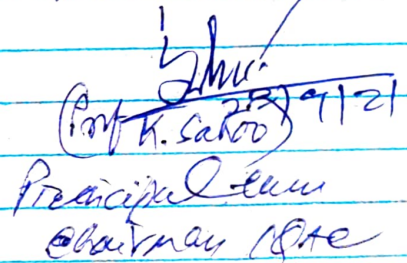 23/9/21
(Prof K. Sahoo)
Principal cum
Chairman IQAC